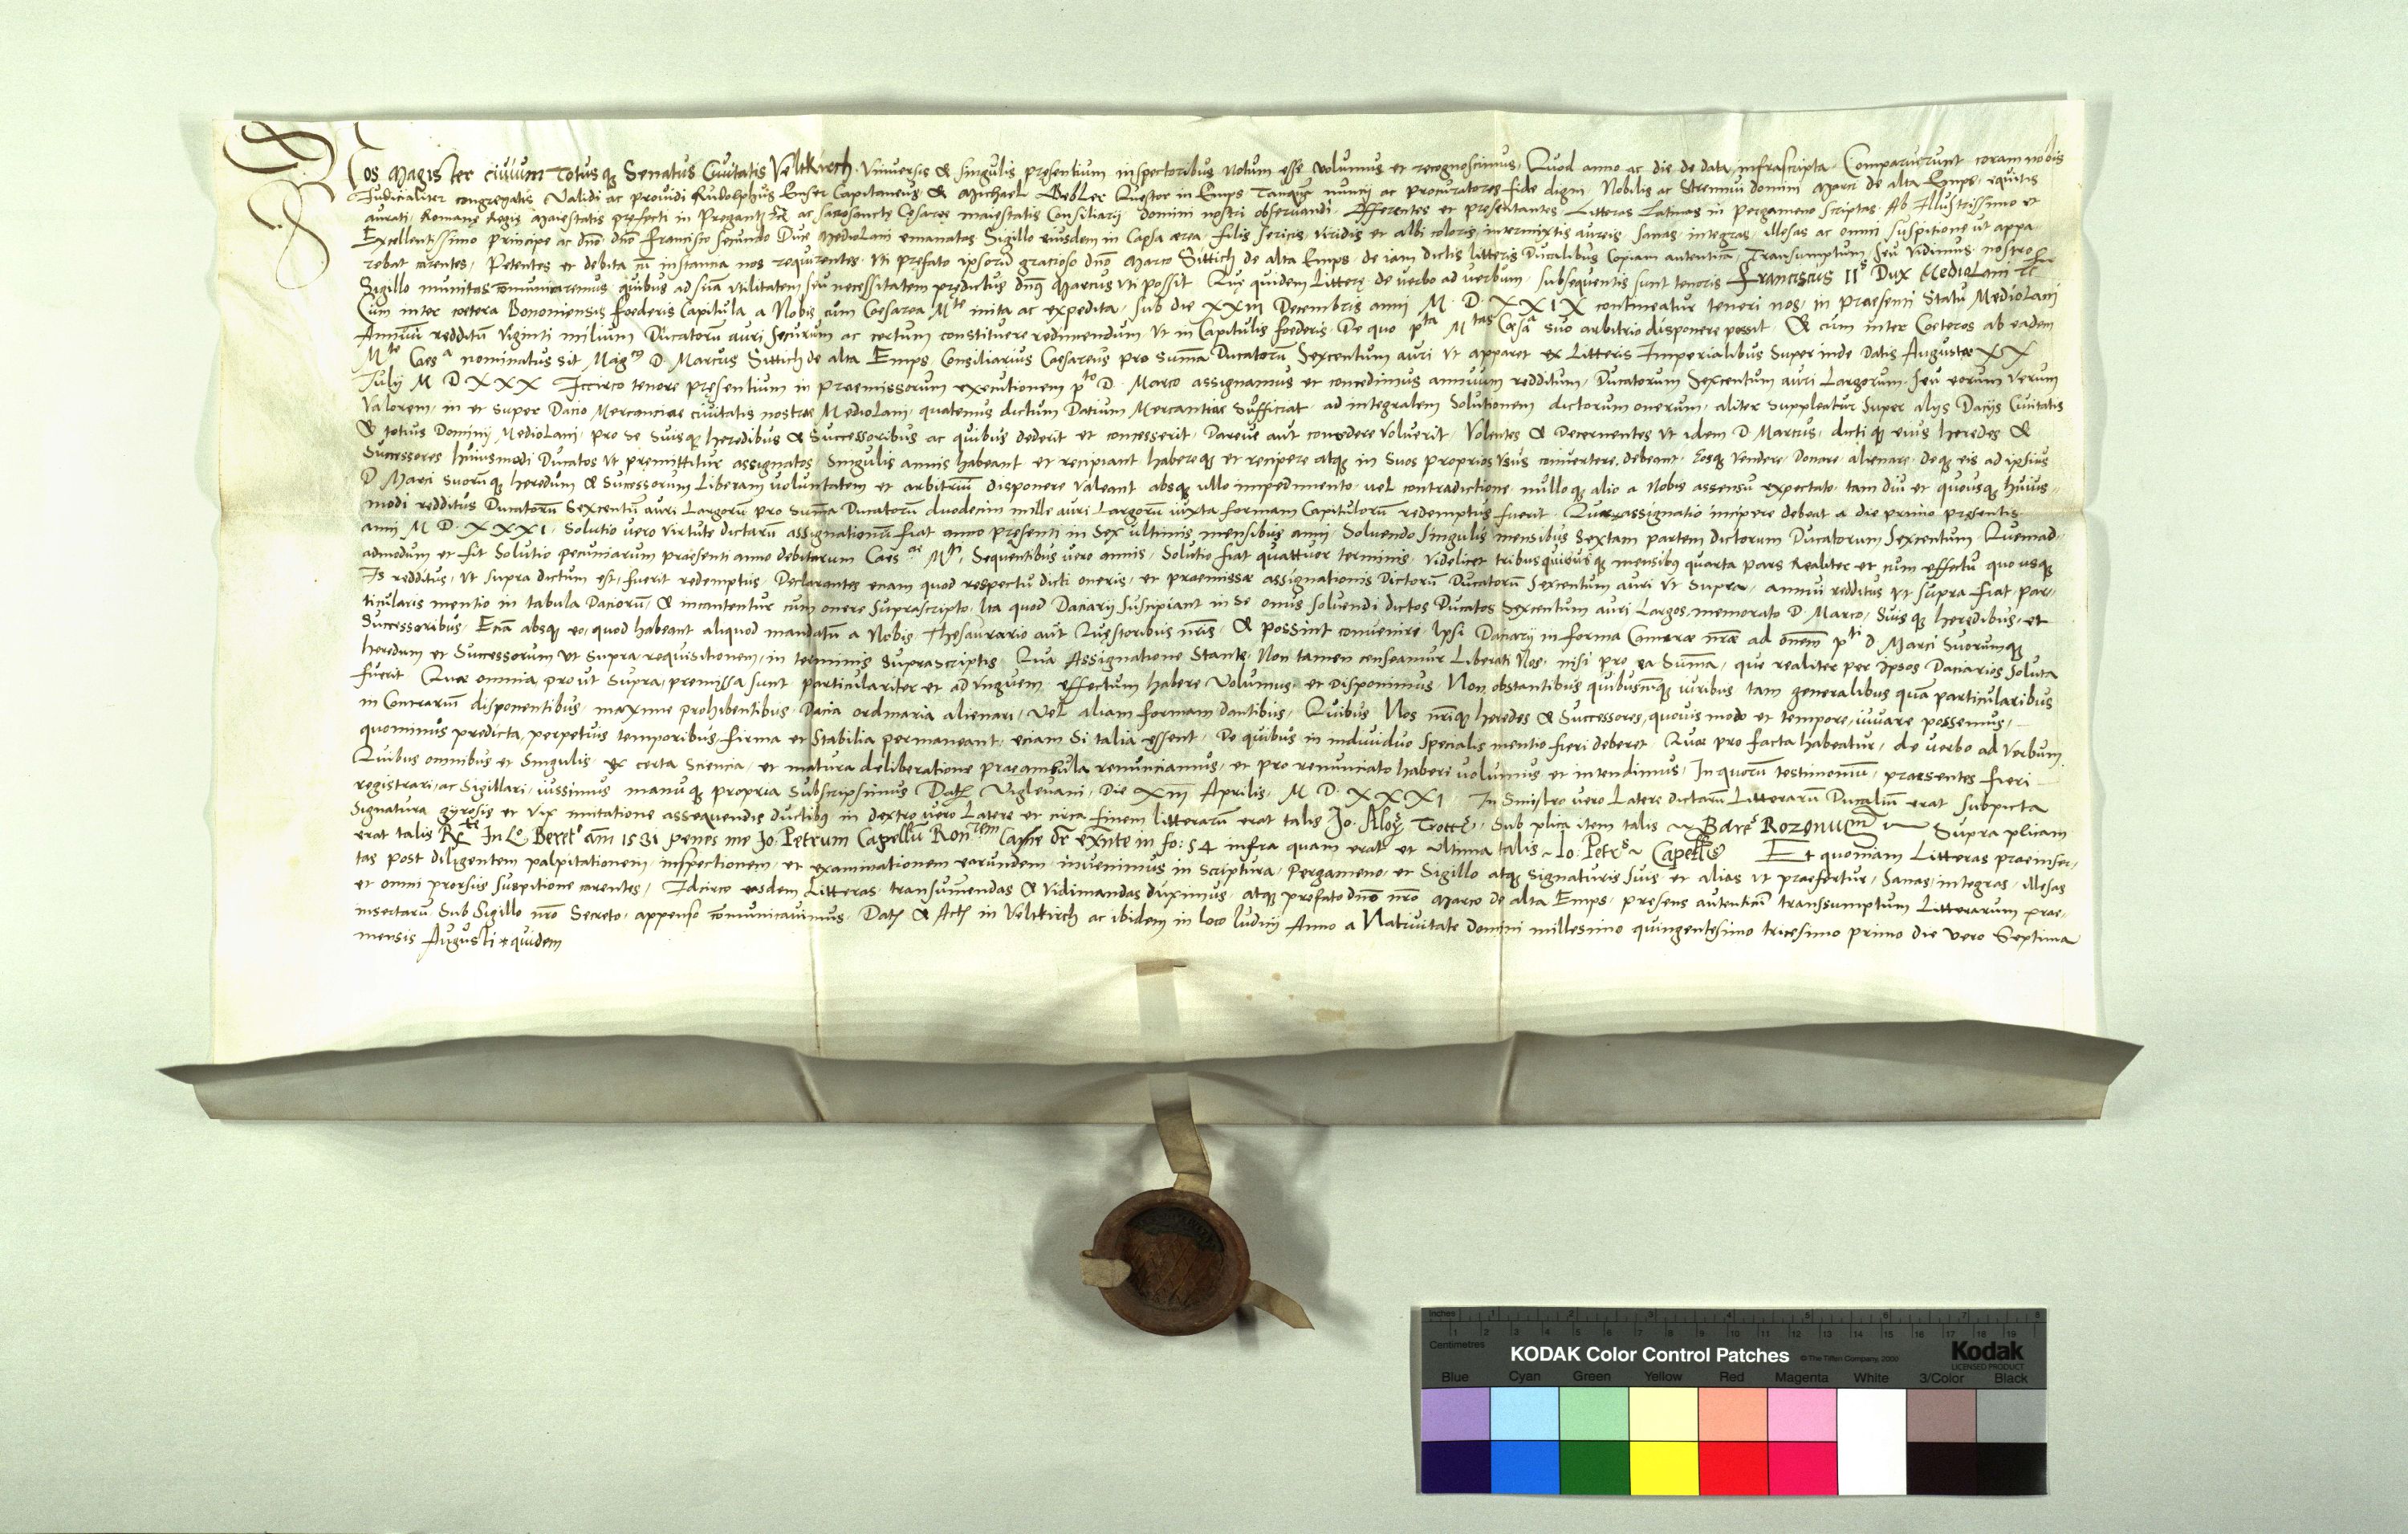 Nos Magister civium Totusq; Senatus Civitatis Veltkirch. Vniversis & singulis presentium inspectoribus notum esse volumus et recognoscimus. Quod anno ac die de data infrascripta. Comparuerunt coram nobis
Judicialiter congregatis Validi ac prouidi Rudolphus Enser Capitaneus & Michael Questor in Emps Tanquam nuncij ac procuratores fide digni Nobilis ac Strenui domini Marci de alta Emps, equitis
aurati, Romanę Regię Maiestatis pręfecti in Pregantz ac sacrosanctę Cęsareę maiestatis Consiliarij domini nostri obseruandi. Offerentes et presentantes Litteras Latinas in pergameno scriptas. Ab Illustrissimo et
Excellentissimo Principe ac dno dno Francisco secundo Duce Mediolani emanatas Sigillo eiusdem in Capsa ærea, filis sericis, viridis et albi coloris, intermixtis aureis, sanas, integras, illesas ac omni suspitione ut appa
rebat carentes, Petentes et debita cu instancia nos requirentes. Vti prefato ipsoru gracioso dno Marco Sittich de alta Emps, de iam dictis litteris Ducalibus Copiam autenticā, Transumptum seu Vidimus, nostro sub
Sigillo munitas comunicaremus, quibus ad suā vtilitatem, seu necessitatem prędictus dnς Marcus vti possit. Quę quidem Litterę de verbo ad verbum, subsequentis sunt tenoris Franciscus IIs Dux Mediolani &c
Cum inter cætera Bononiensis foederis Capitula a Nobis cum Caesarea Mte inita ac expedita, sub die XXIII Decembris anni M. D. XXIX contineatur teneri nos, in praesenti Statu Mediolani
Annuū redditū Viginti milium Ducatorū auri securum ac certum constituere redimendum Vt in Capitulis foederis. De quo pta Mtas Caesa suo arbitrio disponere possit. & cum inter Coeteros ab eadem
Mte Caesa nominatus sit Magcus D. Marcus Sittich de alta Emps Consiliarius Caesareus pro suma Ducatorū Sexcentum auri vt apparet ex Litteris Imperialibus super inde datis Augustae XX
Julij M D XXX Iccirco tenore pręsentium in praemissorum executionem pto D. Marco assignamus et concedimus annuum redditum, Ducatorum Sexcentum auri Largorum, seu eorum verum
Valorem, in et super Dacio Mercanciae ciuitatis nostrae Mediolani, quatenus dictum Datium Mercantiae sufficiat, ad integralem Solutionem dictorum onerum, aliter suppleatur super alijs Dacijs Ciuitatis
& totius Dominij Mediolani, pro se suisq; heredibus & Successoribus ac quibus dederit et concesserit, Dareue aut concedere voluerit, Volentes & Decernentes vt idem D Marcus, dictiq; eius heredes &
Successores huiusmodi Ducatos vt premittitur assignatos, singulis annis habeant et recipiant, habereq; et recipere atq; in suos proprios vsus conuertere debeant, eosq; vendere, donare, alienare, deq; eis ad ipsius
D. Marci suorūq; heredum & Successorum Liberam voluntatem et arbitriū disponere valeant absq; ullo impedimento, uel contradictione, nulloq; alio a Nobis assensu expectato, tam diu et quousq; huius-
modi redditus Ducatorū Sexcentū auri Largorū pro suma Ducatorū duodecim mille auri Largorū iuxta formam Capitulorū redemptus fuerit. Quae assignatio incipere debeat a die primo presentis
anni M D. XXXI, Solutio uero virtute dictarū assignationū fiat anno presenti in sex ultimis mensibus anni, Soluendo singulis mensibus sextam partem dictorum Ducatorum Sexcentum. Quemad-
admodum et fit solutio pecuniarum praesenti anno debitarum Caesae Mti, Sequentibus vero annis, Solutio fiat quattuor terminis, Videlicet tribus quibusq; mensibus quarta pars realiter et cum effectu quousq;
Is redditus, vt supra dictum est, fuerit redemptus. Declarantes etiam quod respectu dicti oneris, et praemissae assignationis dictorū Ducatorū Sexcentum auri vt supra, annui redditus vt supra fiat par-
ticularis mentio in tabula Daciorū, & incantentur cum onere suprascripto. Ita quod Daciarij suscipiant in se onus soluendi dictos Ducatos Sexcentum auri Largos, memorato D. Marco, Suisq; heredibus, et
Successoribus, Etiā absq; eo, quod habeant aliquod mandatū a Nobis Thesaurario aut Quęstoribus nris, & possint conuenire ipsi Daciarij in forma Camerae nrae ad onem pti D. Marci Suorumq;
heredum et Successorum vt supra requisitionem, in terminis suprascriptis. Qua Assignatione Stante, Non tamen censeamur Liberati Nos, nisi pro ea Suma, que realiter per ipsos Daciarios soluta
fuerit. Quae omnia, prout supra, premissa sunt particulariter et ad vnguem effectum habere Volumus et disponimus. Non obstantibus quibuscūq; iuribus tam generalibus quā particularibus
in Contrariū disponentibus, maxime prohibentibus Dacia ordinaria alienari, vel aliam formam dantibus, Quibus Nos nriq; heredes & Successores, quouis modo et tempore, iuuare possemus,
quominus predicta, perpetuis temporibus, firma et stabilia permaneant, eciam si talia essent, De quibus in indiuiduo specialis mentio fieri deberet Quae pro facta habeatur, de verbo ad Verbum
Quibus omnibus et singulis, ex certa sciencia, et matura deliberatione praeambula renunciamus, et pro renunciato haberi volumus et intendimus, In quorū testimoniū, praesentes fieri
registrari, ac Sigillari, iussimus manuq; propria subscripsimus Dat Viglevani, Die XIII Aprilis, M. D. XXXI. In Sinistro vero Latere dictarū Litterarū Ducaliū erat subpicta
Signatura gyrosis et vix imitatione assequendis ductibus, in dextro vero Latere et circa finem litterarum erat talis Jo. Aloys Trotto, sub plica item talis Bars Rozonus Supra plicam
erat talis Rta In Lo Beret ann 1531 penes me Jo. Petrum Capellū fo: 54 infra quam erat et ultima talis Io: Petrs Capellus Et quoniam Litteras praeinser-
tas post diligentem palpitationem, inspectionem, et examinationem earundem, inuenimus in scriptura, Pergameno, et Sigillo atq; signaturis suis, et alias vt praefertur, sanas, integras, illesas
et omni prorsus suspitione carentes, Idcirco easdem Litteras, transumendas & Vidimandas duximus, atq; prefato dno nro Marco de alta Emps, pręsens autenticū transsumptum Litterarum prae-
insertaru, sub Sigillo nro Secreto, appenso comunicauimus. Dat & Act in Veltkirch ac ibidem in loco Iudicij Anno a Natiuitate domini millesimo quingentesimo tricesimo primo die vero Septima
mensis Augusti equidem
Inches 1 2 3 4 5 6 7 8
Centimetres 1 2 3 4 5 6 7 8 9 10 11 12 13 14 15 16 17 18 19
KODAK Color Control Patches © The Tiffen Company, 2000 Kodak
LICENSED PRODUCT
Blue Cyan Green Yellow Red Magenta White 3/Color Black